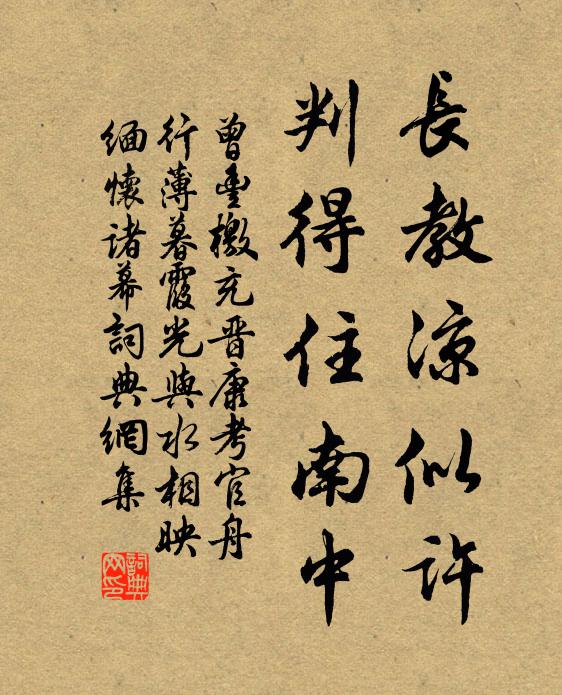 長教涼似許
判得住南中
曾豊檄充晋康考官舟
行薄暮霞光與水相映
緬懷诸幕詞典網集
詞典网印